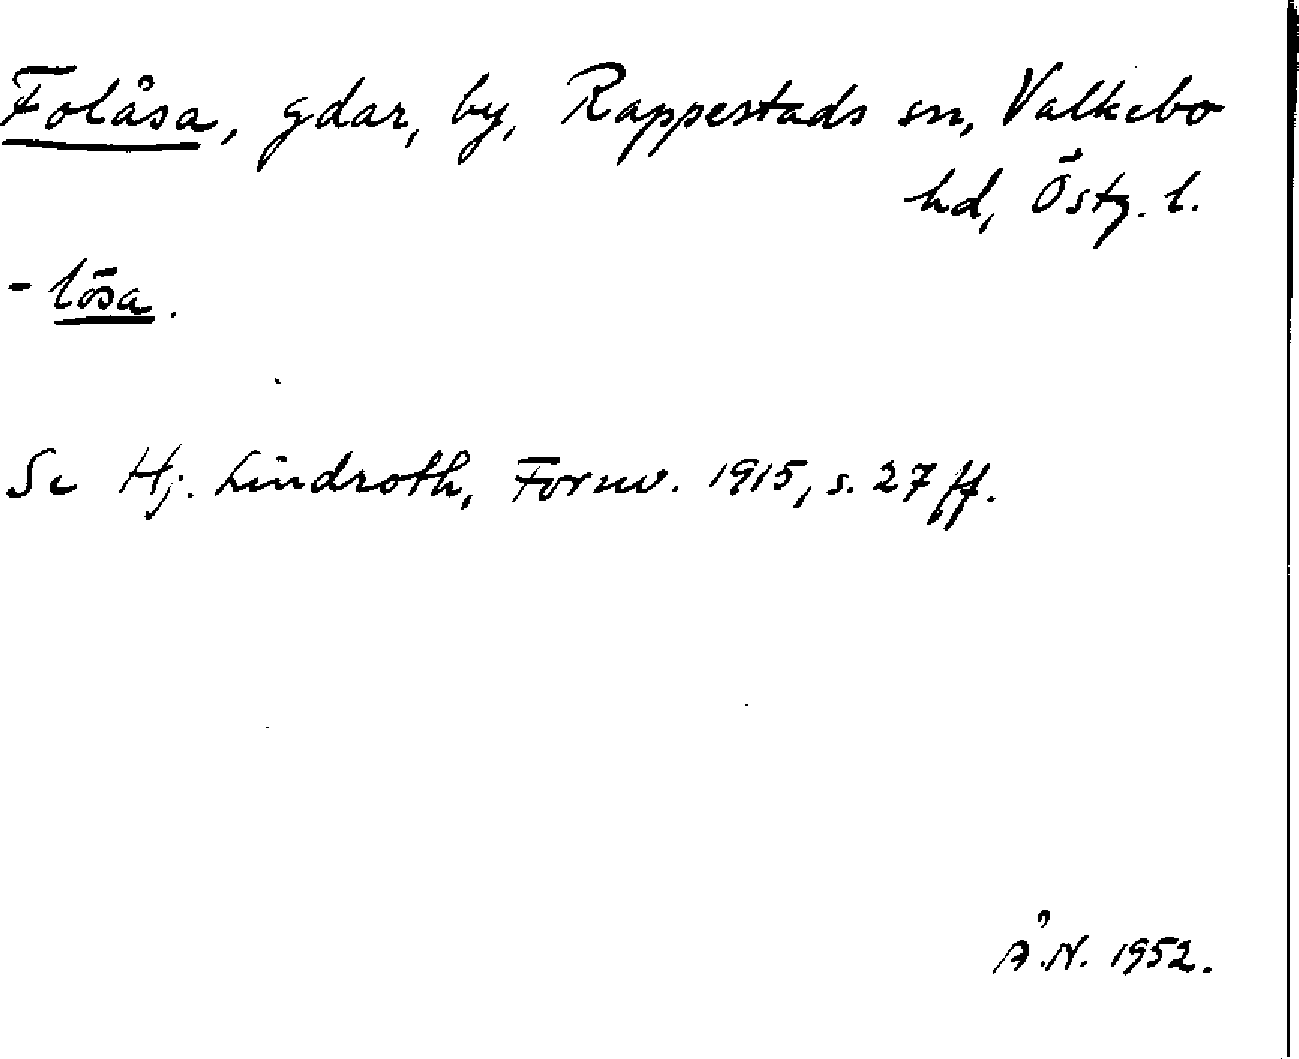 Folåsa, gdar, by, Rappestads sn, Valkebo
hd, Östg. l.
- lösa.
Se Hj. Lindroth, Fornv. 1915, s. 27 ff.
Å.N. 1952.